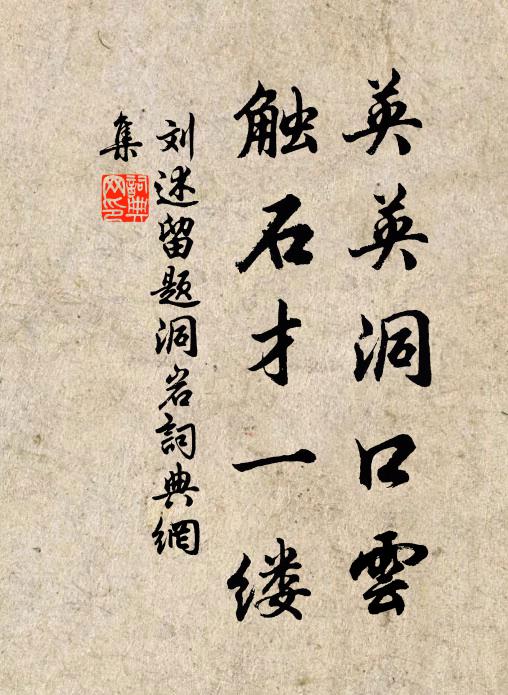 英英洞口雲
触石才一缕
刘述留题洞岩詞典網
集
詞典
网印